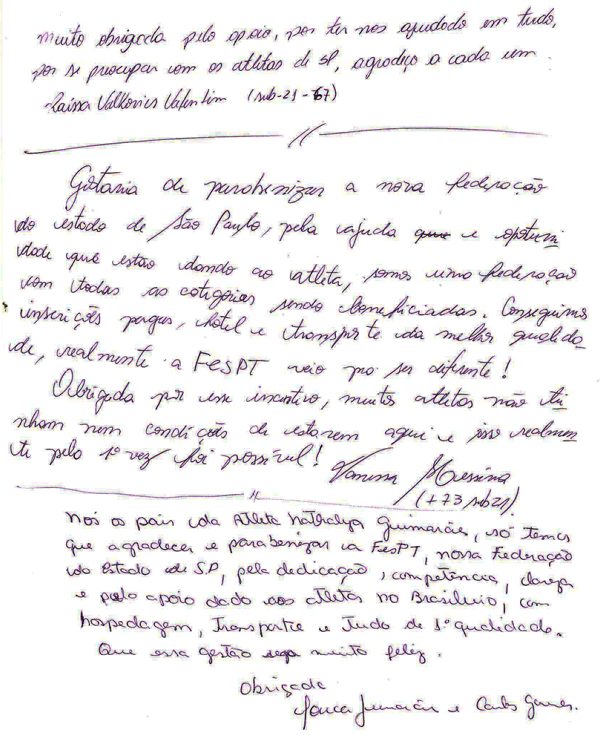 muito obrigada pelo apoio, por ter nos ajudado em tudo,
por se preocupar com os atletas de SP, agradeço a cada um.
(sub-21 -67)
Gostaria de parabenizar a nova federação
do estado de São Paulo, pela ajuda que e oportuni
dade que estão dando ao atleta, somos uma federação
com todas as categorias sendo beneficiadas. Conseguimos
inscrições pagas, hotel e transporte da melhor qualida-
de, realmente a FESPT veio pra ser diferente!
Obrigada por esse incentivo, muitos atletas não ti
nham nem condições de estarem aqui e isso realmen
te pela 1ª vez foi possível! Vanessa Messina
(+73 sub21)
Nós os pais da Atleta Nathalya Guimarães, só temos
que agradecer e parabenizar a FESPT, nossa Federação
do Estado de SP, pela dedicação, competência, clareza
e pelo apoio dado aos atletas no Brasileiro, com
hospedagem, transporte e tudo de 1ª qualidade.
Que essa gestão seja muito feliz.
Obrigada
e Carlos